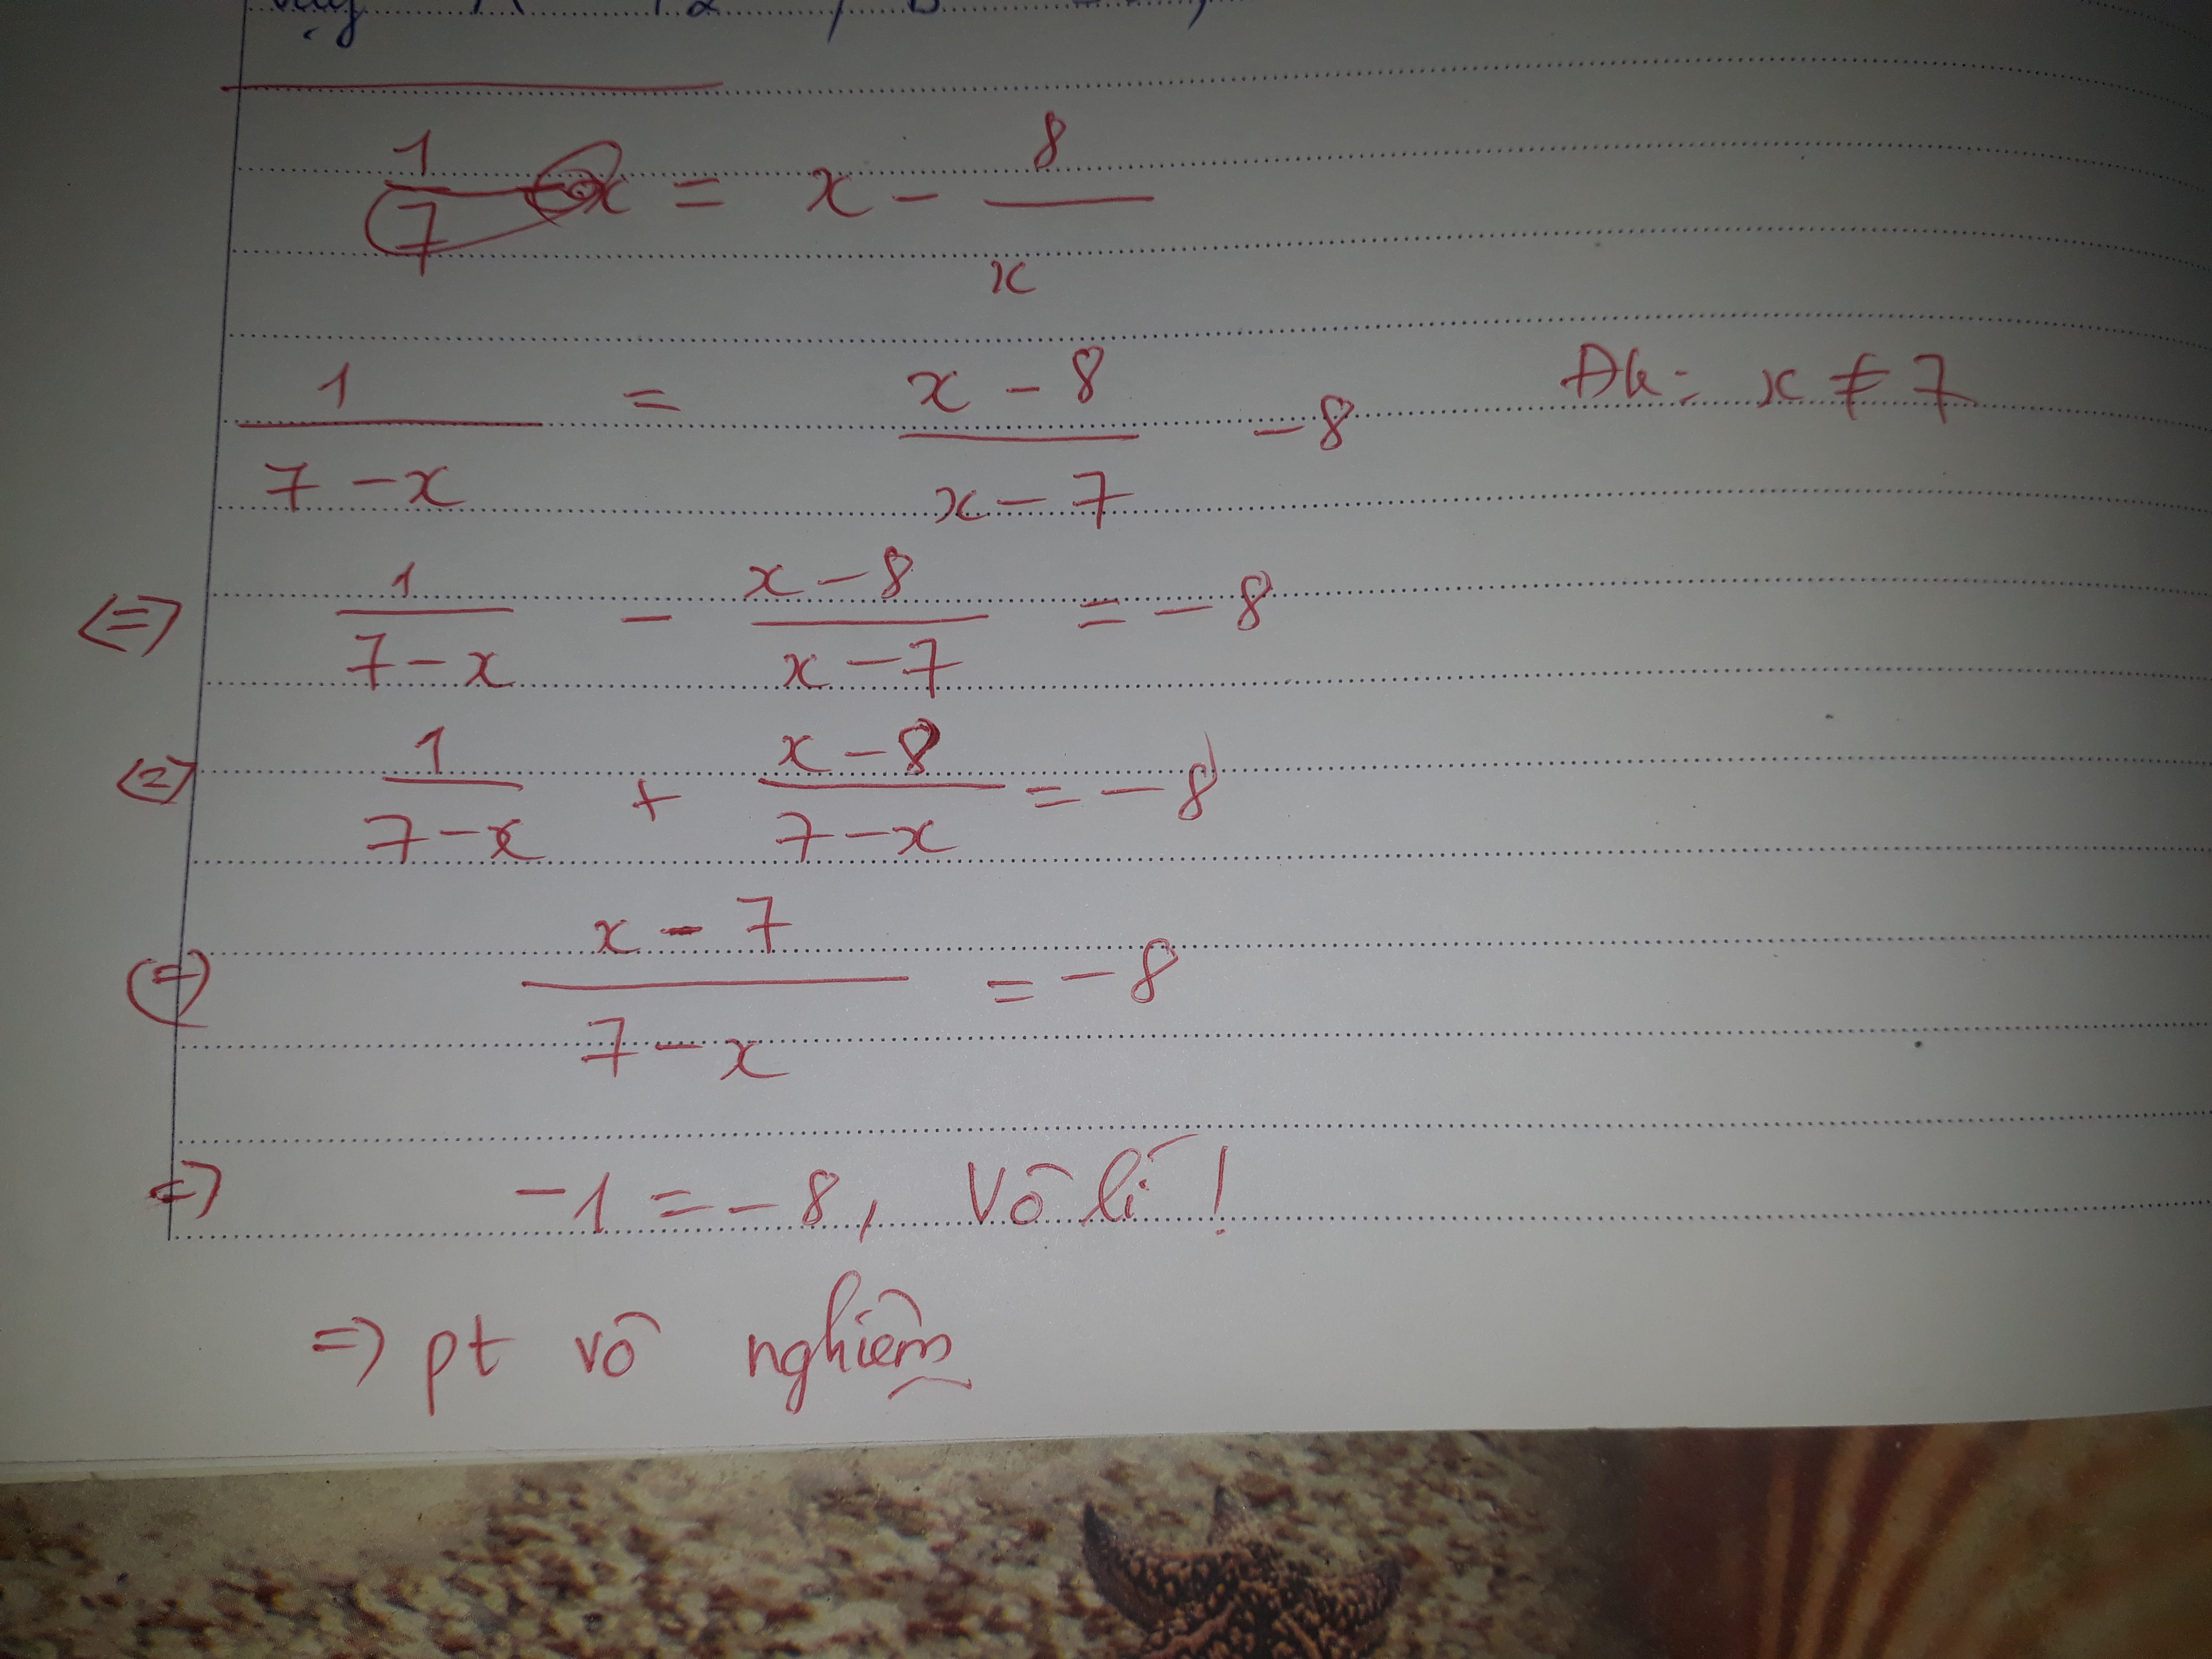 1/7 - x = x - 8/x
1/(7-x) = (x-8)/(x-7) - 8   Đk: x ≠ 7
<=> 1/(7-x) - (x-8)/(x-7) = -8
<=> 1/(7-x) + (x-8)/(7-x) = -8
<=> (x-7)/(7-x) = -8
=> -1 = -8, Vô lí!
=> pt vô nghiệm